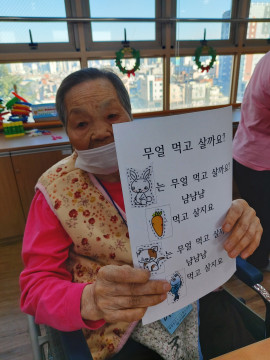 무얼 먹고 살까요?
는 무얼 먹고 살까요?
냠냠냠
먹고 살지요
는 무얼 먹고 살
냠냠냠
먹고 살지요